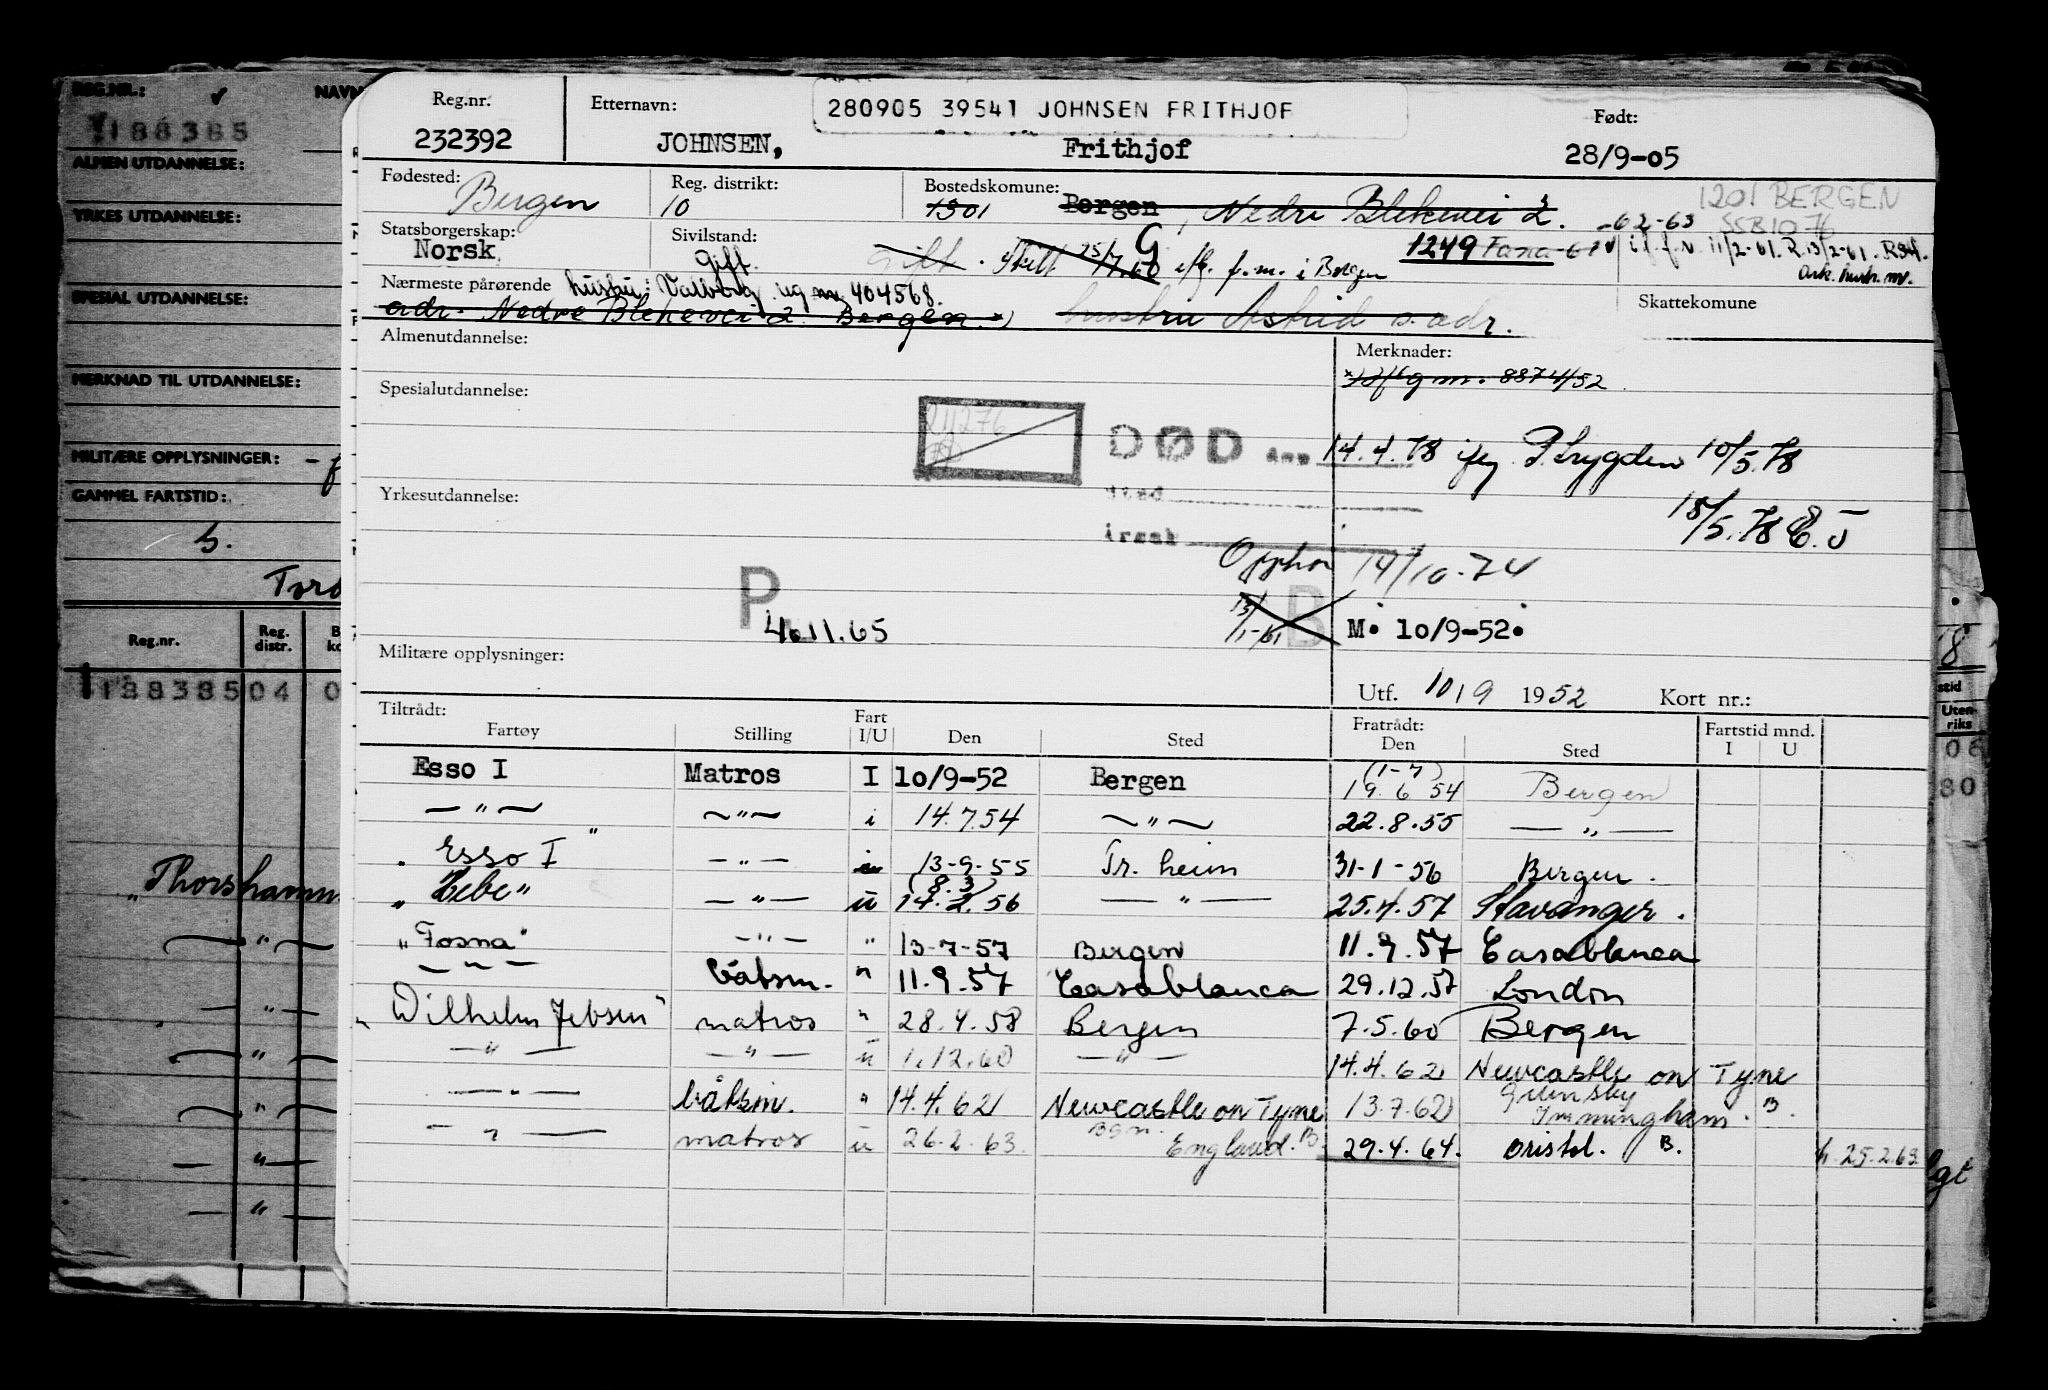 REG.NR.: NAVN
188385
ALMEN UTDANNELSE:
YRKES UTDANNELSE:
SPESIAL UTDANNELSE:
MERKNAD TIL UTDANNELSE:
MILITÆRE OPPLYSNINGER:
GAMMEL FARTSTID:
5.
Reg.nr. Reg. distr.
188385 04 0
"Thorshamm
— " —
— " —
— " —
— " —
— " —
— " —
Reg.nr. Etternavn: 280905 39541 JOHNSEN FRITHJOF Født:
232392 JOHNSEN, Frithjof 28/9-05
Fødested: Bergen Reg. distrikt: 10 Bostedskomune: 1301 Bergen, Nedre Blekevei 2. -62-63 1201 BERGEN
SSB 10 76
Statsborgerskap: Norsk Sivilstand: Gift. Gift. Skilt 25/7.60 G efg. f.m. i Bergen 1249 Fana 11/2-61. R.13/2-61.
Nærmeste pårørende hustru: Valborg 404568. Skattekomune
adr. Nedre Blekevei 2 Bergen x) hustru Astrid s. adr.
Almenutdannelse: Merknader:
8874/52
Spesialutdannelse:
211276
DØD den 14.4.78 10/5.78
sted
Yrkesutdannelse: 18/5.78
årsak
Opphør 14/10-74
P 4.11.65 13/1-61 B M. 10/9-52.
Militære opplysninger:
Utf. 10/9 1952 Kort nr.:
Tiltrådt: Fratrådt: Fartstid mnd.
Fartøy Stilling Fart I/U Den Sted Den Sted I U
Esso I Matros I 10/9-52 Bergen (1-7) 19.6 54 Bergen
— " — — " — i 14.7.54 — " — 22.8.55 — " —
" Esso I " — " — 13-9-55 Tr.heim 31-1-56 Bergen.
" Hebe" — " — u (8.3) 14.2.56 — " — 25.4.57 Stavanger.
"Fosna" — " — " 13-7-57 Bergen 11.9.57 Casablanca
— " — båtsm. " 11.9.57 Casablanca 29.12.57 London
"Wilhelm Jebsen" matros " 28.4.58 Bergen 7.5.60 Bergen
— " — — " — u 1.12.60 — " — 14.4.62 Newcastle on Tyne
— " — båtsm. " 14.4.62 Newcastle on Tyne 13.7.62 Immingham. B.
— " — matros u 26.2.63. Bgn. England. B. 29.4.64. B. 25.2.63
8
stid
Uten-
riks
06
80